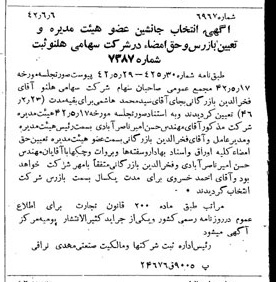 شماره ۶۹۶۷ ۴۲ر۶ر۶
آگهی، انتخاب جانشین عضو هیئت مدیره و
تعیین بازرس و حق امضاء درشرکت سهامی هلنو ثبت
شماره ۷۳۸۷
طبق نامه شماره ۳۰-۴۲۵-۲۹ر۵ر۴۲ پیوست صورتجلسه مورخه
۱۷ر۵ر۴۲ مجمع عمومی صاحبان سهام شرکت سهامی هلنو آقای
فخرالدین بازرگانی بجای آقای سید محمد هاشمی برای بقیه مدت (۲ر۲ر
۴۶) تعیین گردیدند و به استناد صورتجلسه مورخه ۱۷ر۵ر۴۲ هیئت مدیره
شرکت مذکور آقای مهندس حسن امیر ناصر آبادی بسمت رئیس هیئت مدیره
ومدیر عامل وآقای فخرالدین بازرگانی بسمت عضو هیئت مدیره تعیین حق
امضاء کلیه اوراق واسناد بهادار وسفته‌ها وبروات وچکها با آقایان مهندس
حسن امیر ناصر آبادی و فخرالدین بازرگانی متفقاً با مهر شرکت خواهد
بود وآقای احمد خسروی برای مدت یکسال بسمت بازرس شرکت
انتخاب گردیدند •
مراتب طبق ماده ۲۰۰ قانون تجارت برای اطلاع
عموم در روزنامه رسمی کشور ویکی از جراید کثیرالانتشار یومیه مرکز
آگهی میشود
رئیس اداره ثبت شرکتها و مالکیت صنعتی مهدی نراقی
پ ۹۰۰۵ ق ۲۴۶۷۶